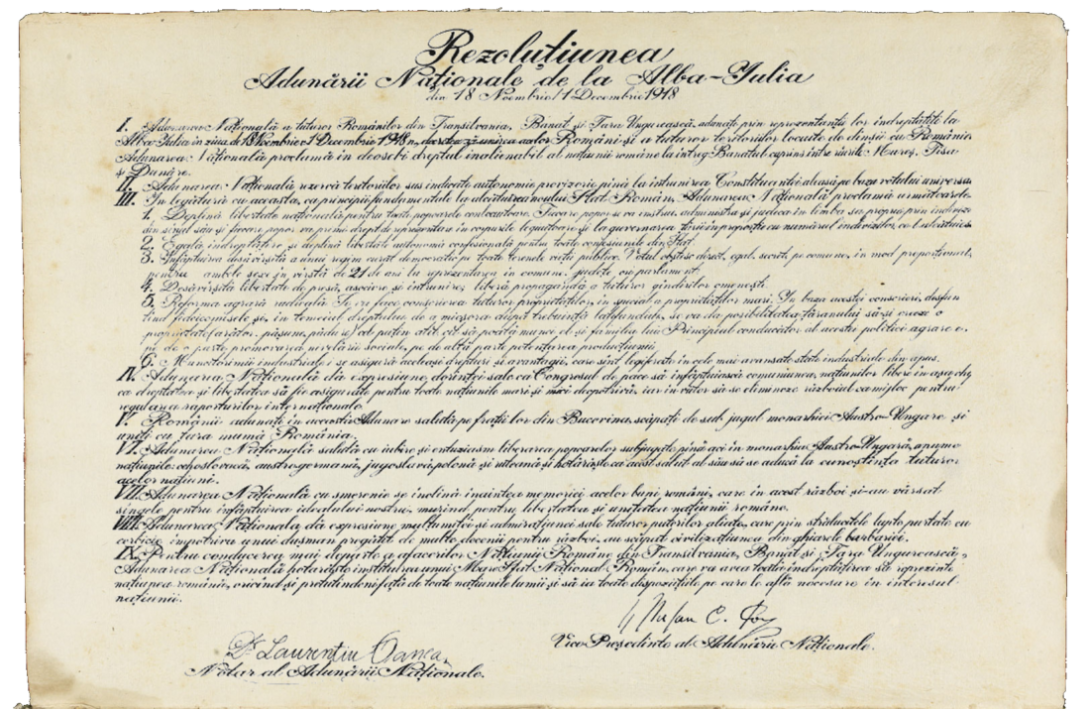 Rezoluțiunea
Adunării Naționale de la Alba-Iulia
din 18 Noembrie/1 Decembrie 1918
I. Adunarea Națională a tuturor Românilor din Transilvania, Banat și Țara Ungurească, adunați prin reprezentanții lor îndreptățiți la
Alba-Iulia în ziua de 18 Noembrie/1 Decembrie 1918, Români și a tuturor teritoriilor locuite de dînșii cu România.
Adunarea Națională proclamă în deosebi dreptul inalienabil al națiunii române la întreg Banatul cuprins între rîurile Mureș, Tisa
și Dunăre.
II. Adunarea Națională rezervă teritoriilor sus indicate autonomie provizorie pînă la întrunirea Constituantei aleasă pe baza votului universal.
III. În legătură cu aceasta, ca principii fundamentale la alcătuirea noului Stat Român, Adunarea Națională proclamă următoarele:
1. Deplină libertate națională pentru toate popoarele conlocuitoare. Fiecare popor se va instrui, administra și judeca în limba sa proprie prin indivizi
din sînul său și fiecare popor va primi drept de reprezentare în corpurile legiuitoare și la guvernarea țării în proporție cu numărul indivizilor ce-l alcătuiesc.
2. Egală îndreptățire și deplină libertate autonomă confesională pentru toate confesiunile din Stat.
3. Înfăptuirea desăvîrșită a unui regim curat democratic pe toate terenele vieții publice. Votul obștesc, direct, egal, secret, pe comune, în mod proporțional,
pentru ambele sexe, în vîrstă de 21 de ani la reprezentarea în comune, județe ori parlament.
4. Desăvîrșită libertate de presă, asociere și întrunire, liberă propagandă a tuturor gîndirilor omenești.
5. Reforma agrară radicală. Se va face conscrierea tuturor proprietăților, în special a proprietăților mari. În baza acestei conscrieri, desființînd
fideicomisele și, în temeiul dreptului de a micșora după trebuință latifundiile, se va da posibilitatea țăranului să-și creeze o
proprietate (arător, pășune, pădure) cel puțin atît cît să poată munci el și familia lui. Principiul conducător al acestei politici agrare e
pe de o parte promovarea nivelării sociale, pe de altă parte potențarea producțiunii.
6. Muncitorimii industriale i se asigură aceleași drepturi și avantagii, care sînt legiferate în cele mai avansate state industriale din apus.
IV. Adunarea Națională dă expresiune dorinței sale, ca Congresul de pace să înfăptuiască comuniunea națiunilor libere în așa chip,
ca dreptatea și libertatea să fie asigurate pentru toate națiunile mari și mici deopotrivă, iar în viitor să se elimineze războiul ca mijloc pentru
regularea raporturilor internaționale.
V. Românii adunați în această Adunare salută pe frații lor din Bucovina, scăpați de sub jugul monarhiei Austro-Ungare și
uniți cu țara mumă România.
VI. Adunarea Națională salută cu iubire și entuziasm liberarea popoarelor subjugate pînă aci în monarhia Austro-Ungară, anume
națiunile: cehoslovacă, austro-germană, iugoslavă, polonă și ruteană și hotărăște ca acest salut al său să se aducă la cunoștința tuturor
acelor națiuni.
VII. Adunarea Națională cu smerenie se închină înaintea memoriei acelor bravi români, care în acest război și-au vărsat
sîngele pentru înfăptuirea idealului nostru, murind pentru libertatea și unitatea națiunii române.
VIII. Adunarea Națională dă expresiune mulțumitei și admirațiunei sale tuturor puterilor aliate, care prin strălucitele lupte purtate cu
cerbicie împotriva unui dușman pregătit de multe decenii pentru război, au scăpat civilizațiunea din ghiarele barbariei.
IX. Pentru conducerea mai departe a afacerilor Națiunii Române din Transilvania, Banat și Țara Ungurească,
Adunarea Națională hotărăște instituirea unui Mare Sfat Național Român, care va avea toată îndreptățirea să reprezinte
națiunea română, oricînd și pretutindeni față de toate națiunile lumii și să ia toate dispozițiile pe care le află necesare în interesul
națiunii.
Dr Laurențiu Oanea,
Notar al Adunării Naționale.
Vice Președinte al Adunării Naționale.